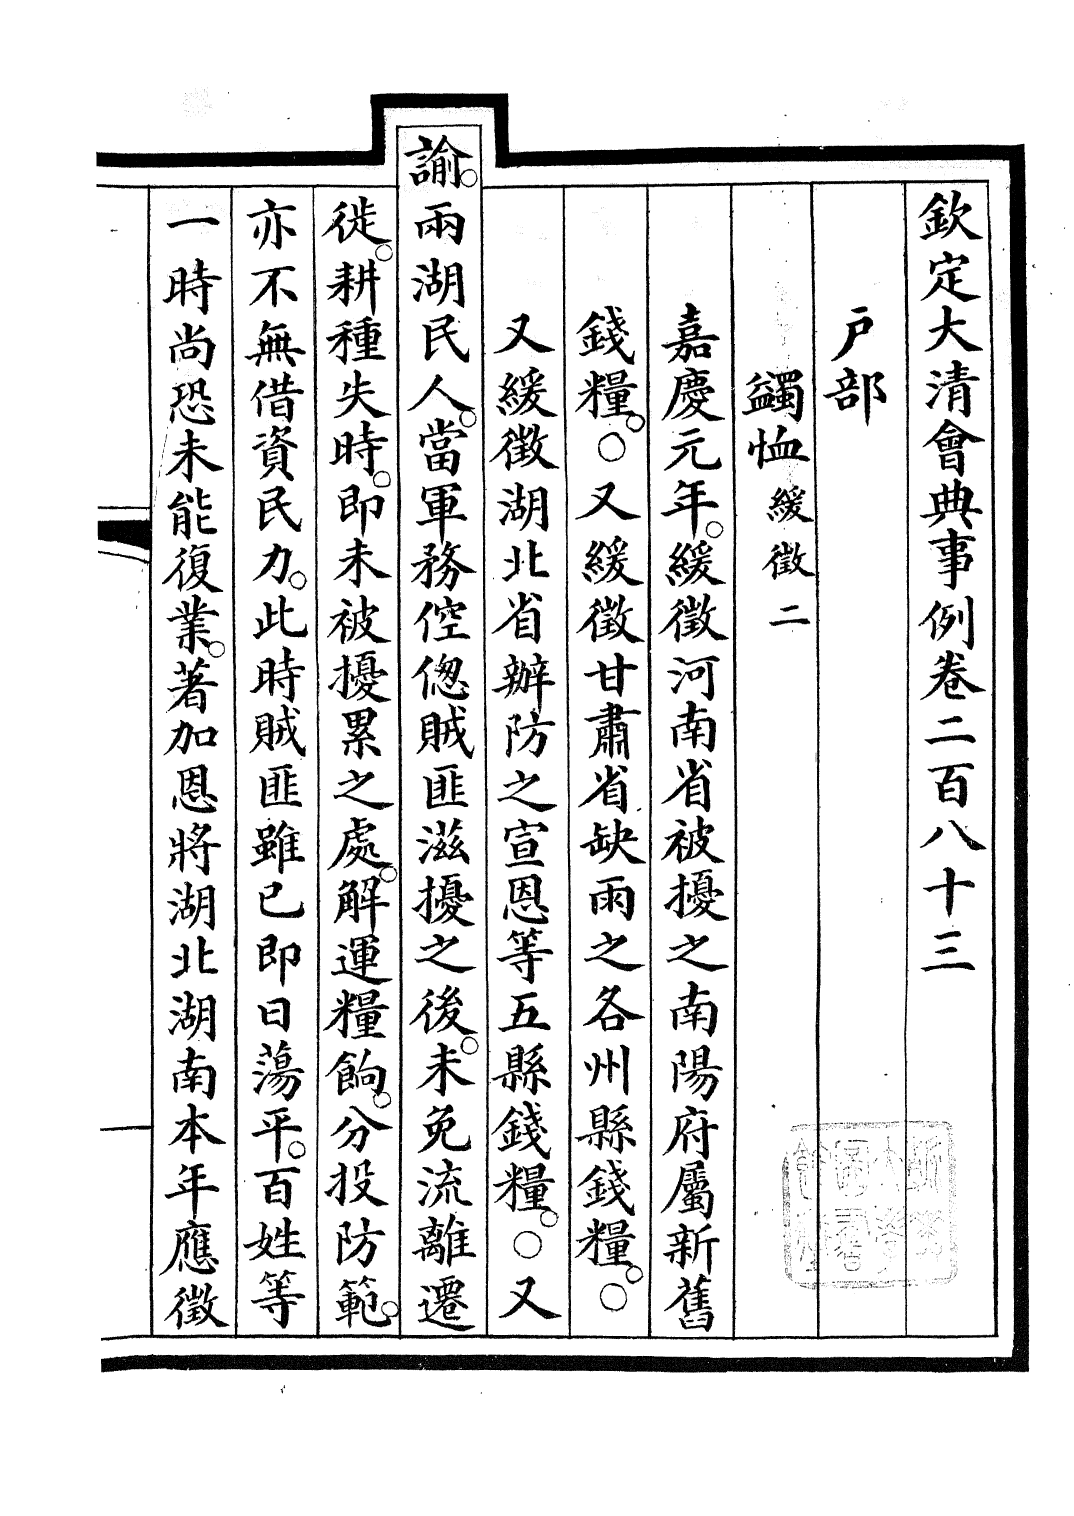 欽定大清會典事例卷二百八十三
戶部
蠲恤緩徵二
嘉慶元年。緩徵河南省被擾之南陽府屬新舊
錢糧。○又緩徵甘肅省缺雨之各州縣錢糧。○
又緩徵湖北省辦防之宣恩等五縣錢糧。○又
諭。兩湖民人。當軍務倥傯賊匪滋擾之後。未免流離遷
徙。耕種失時。即未被擾累之處。解運糧餉。分投防範。
亦不無借資民力。此時賊匪雖已即日蕩平。百姓等
一時尚恐未能復業。著加恩將湖北湖南本年應徵